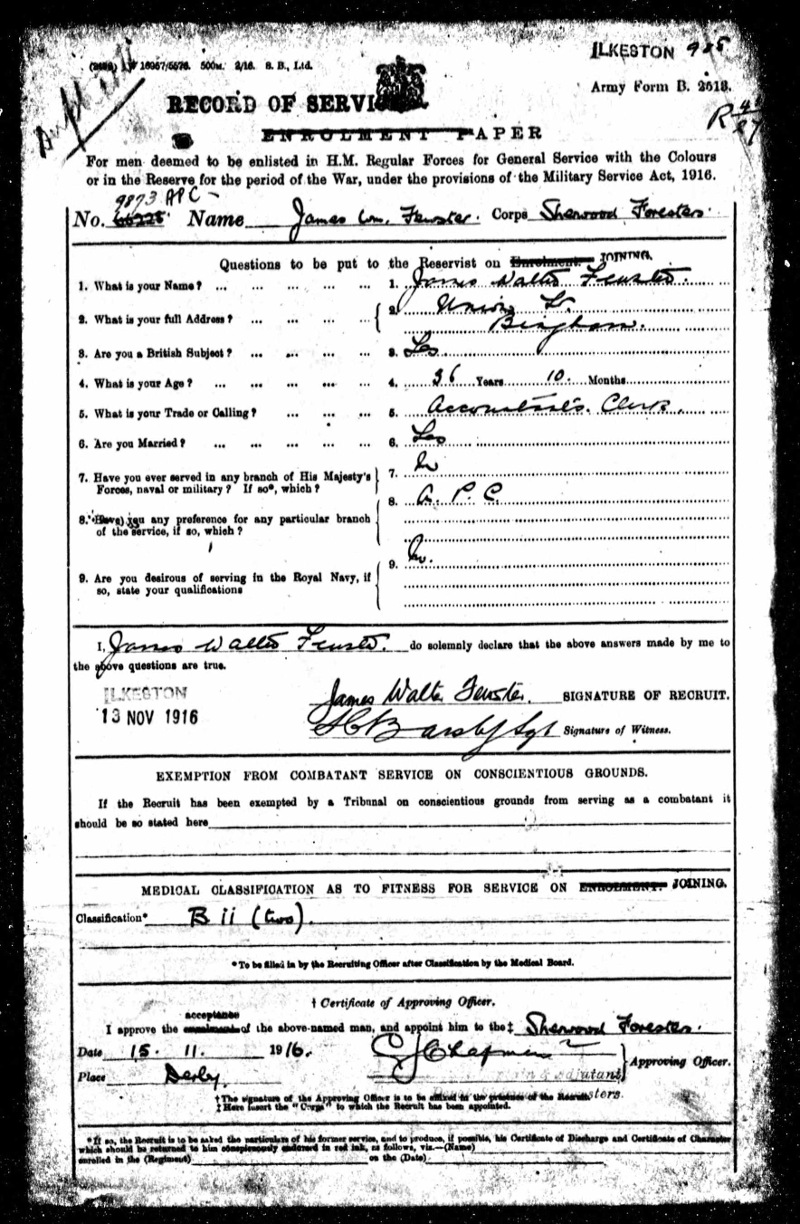 ILKESTON 985
16967/5576. 500M. 2/16. S. B., Ltd.
Army Form B. 2513.
Duplicate
RECORD OF SERVICE
ENROLMENT PAPER
For men deemed to be enlisted in H.M. Regular Forces for General Service with the Colours
or in the Reserve for the period of the War, under the provisions of the Military Service Act, 1916.
9873 APC
No. Name James Wm. Fewster. Corps Sherwood Foresters.
Questions to be put to the Reservist on Enrolment. JOINING.
1. What is your Name? ... 1. James Walter Fewster.
2. What is your full Address? ... 2. Union St.
Bingham.
3. Are you a British Subject? ... 3. Yes.
4. What is your Age? ... 4. 36 Years 10. Months
5. What is your Trade or Calling? ... 5. Accountant's Clerk.
6. Are you Married? ... 6. Yes
7. Have you ever served in any branch of His Majesty's
Forces, naval or military? If so*, which? 7. No
8. Have you any preference for any particular branch
of the service, if so, which? 8. A. P. C.
9. Are you desirous of serving in the Royal Navy, if
so, state your qualifications 9. No.
I, James Walter Fewster. do solemnly declare that the above answers made by me to
the above questions are true.
ILKESTON
13 NOV 1916
James Walter Fewster. SIGNATURE OF RECRUIT.
Sgt Signature of Witness.
EXEMPTION FROM COMBATANT SERVICE ON CONSCIENTIOUS GROUNDS.
If the Recruit has been exempted by a Tribunal on conscientious grounds from serving as a combatant it
should be so stated here
MEDICAL CLASSIFICATION AS TO FITNESS FOR SERVICE ON ENROLMENT. JOINING.
Classification* B ii (two).
* To be filled in by the Recruiting Officer after Classification by the Medical Board.
† Certificate of Approving Officer.
acceptance
I approve the enrolment of the above-named man, and appoint him to the‡ Sherwood Foresters.
Date 15. 11. 1916.
Chapman Approving Officer.
Place Derby.
Adjutant
sters.
† The signature of the Approving Officer is to be affixed in the presence of the Recruit.
‡ Here insert the "Corps" to which the Recruit has been appointed.
* If so, the Recruit is to be asked the particulars of his former service, and to produce, if possible, his Certificate of Discharge and Certificate of Character
which should be returned to him conspicuously endorsed in red ink, as follows, viz.—(Name)
enrolled in the (Regiment) on the (Date)